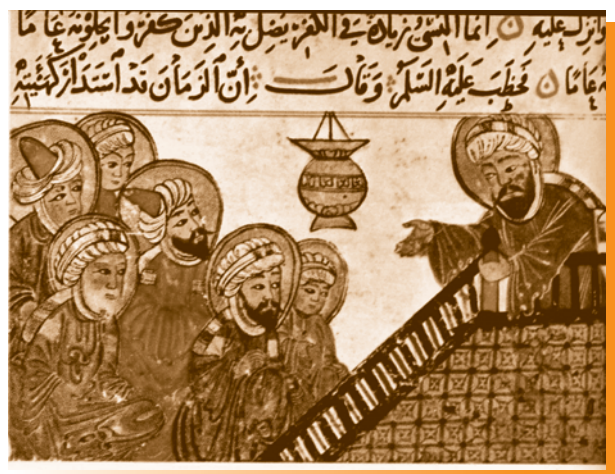 وانزل عليه انما النسىُ زيادةٌ فى الكفر يضل به الذين كفروا يحلونه عاما
عامًا فخطب عليه السلم وقال إنّ الزمان قد استدار كهيئته